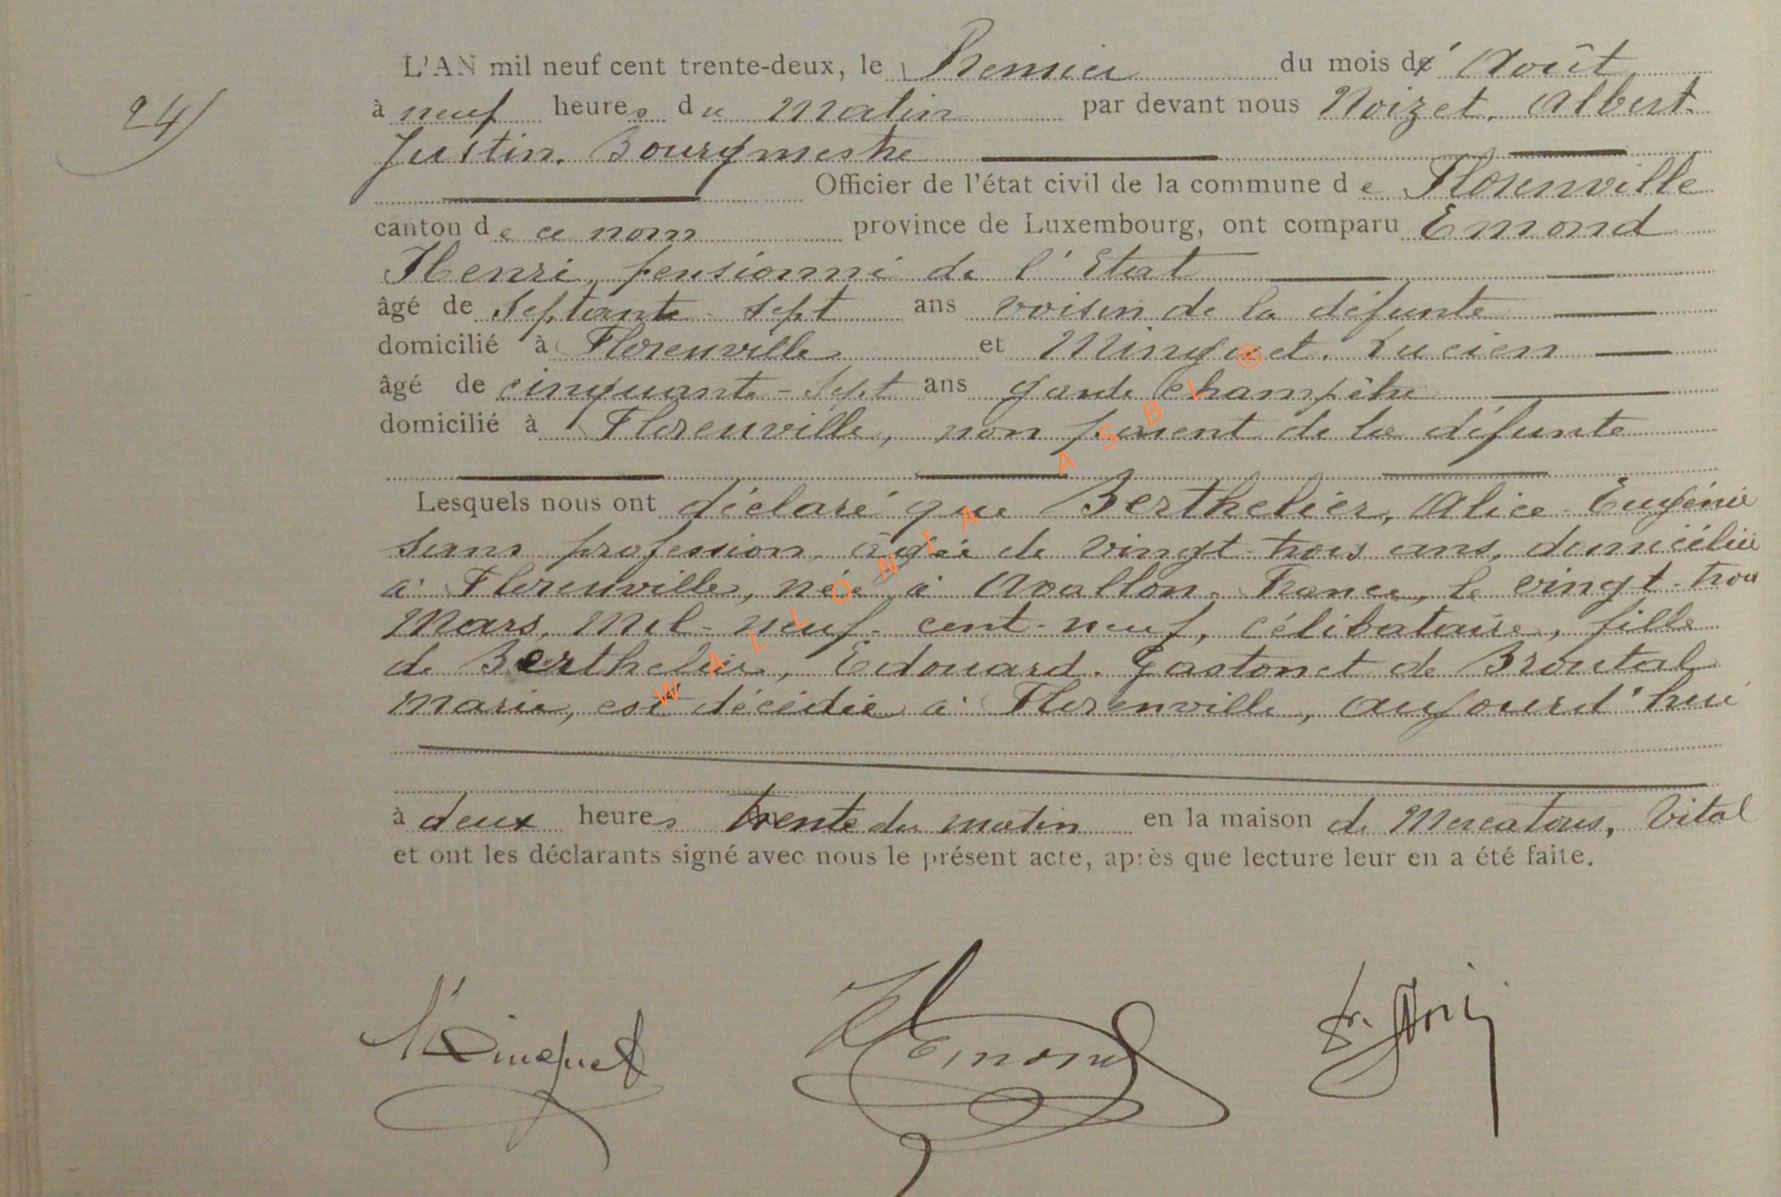 24)
L'AN mil neuf cent trente-deux, le Premier du mois d' Août
à neuf heures du Matin par devant nous Noizet, Albert
Justin. Bourgmestre
Officier de l'état civil de la commune de Florenville
canton de ce nom province de Luxembourg, ont comparu Emond
Henri, pensionné de l'Etat
âgé de Septante-sept ans voisin de la défunte
domicilié à Florenville et Minquet. Lucien
âgé de cinquante-sept ans garde champêtre
domicilié à Florenville, non parent de la défunte
Lesquels nous ont déclaré que Berthelier, Alice Eugénie
sans profession, âgée de vingt-trois ans, domiciliée
à Florenville, née à Avallon. France, le vingt-trois
Mars, Mil-neuf-cent-neuf, célibataire, fille
de Berthelier, Edouard. Gaston et de Broutal
Marie, est décédée à Florenville, aujourd'hui
à deux heures trente du matin en la maison de Mercatoris, Vital
et ont les déclarants signé avec nous le présent acte, après que lecture leur en a été faite.
Minquet HEmond
WALLONIA ASBL ®